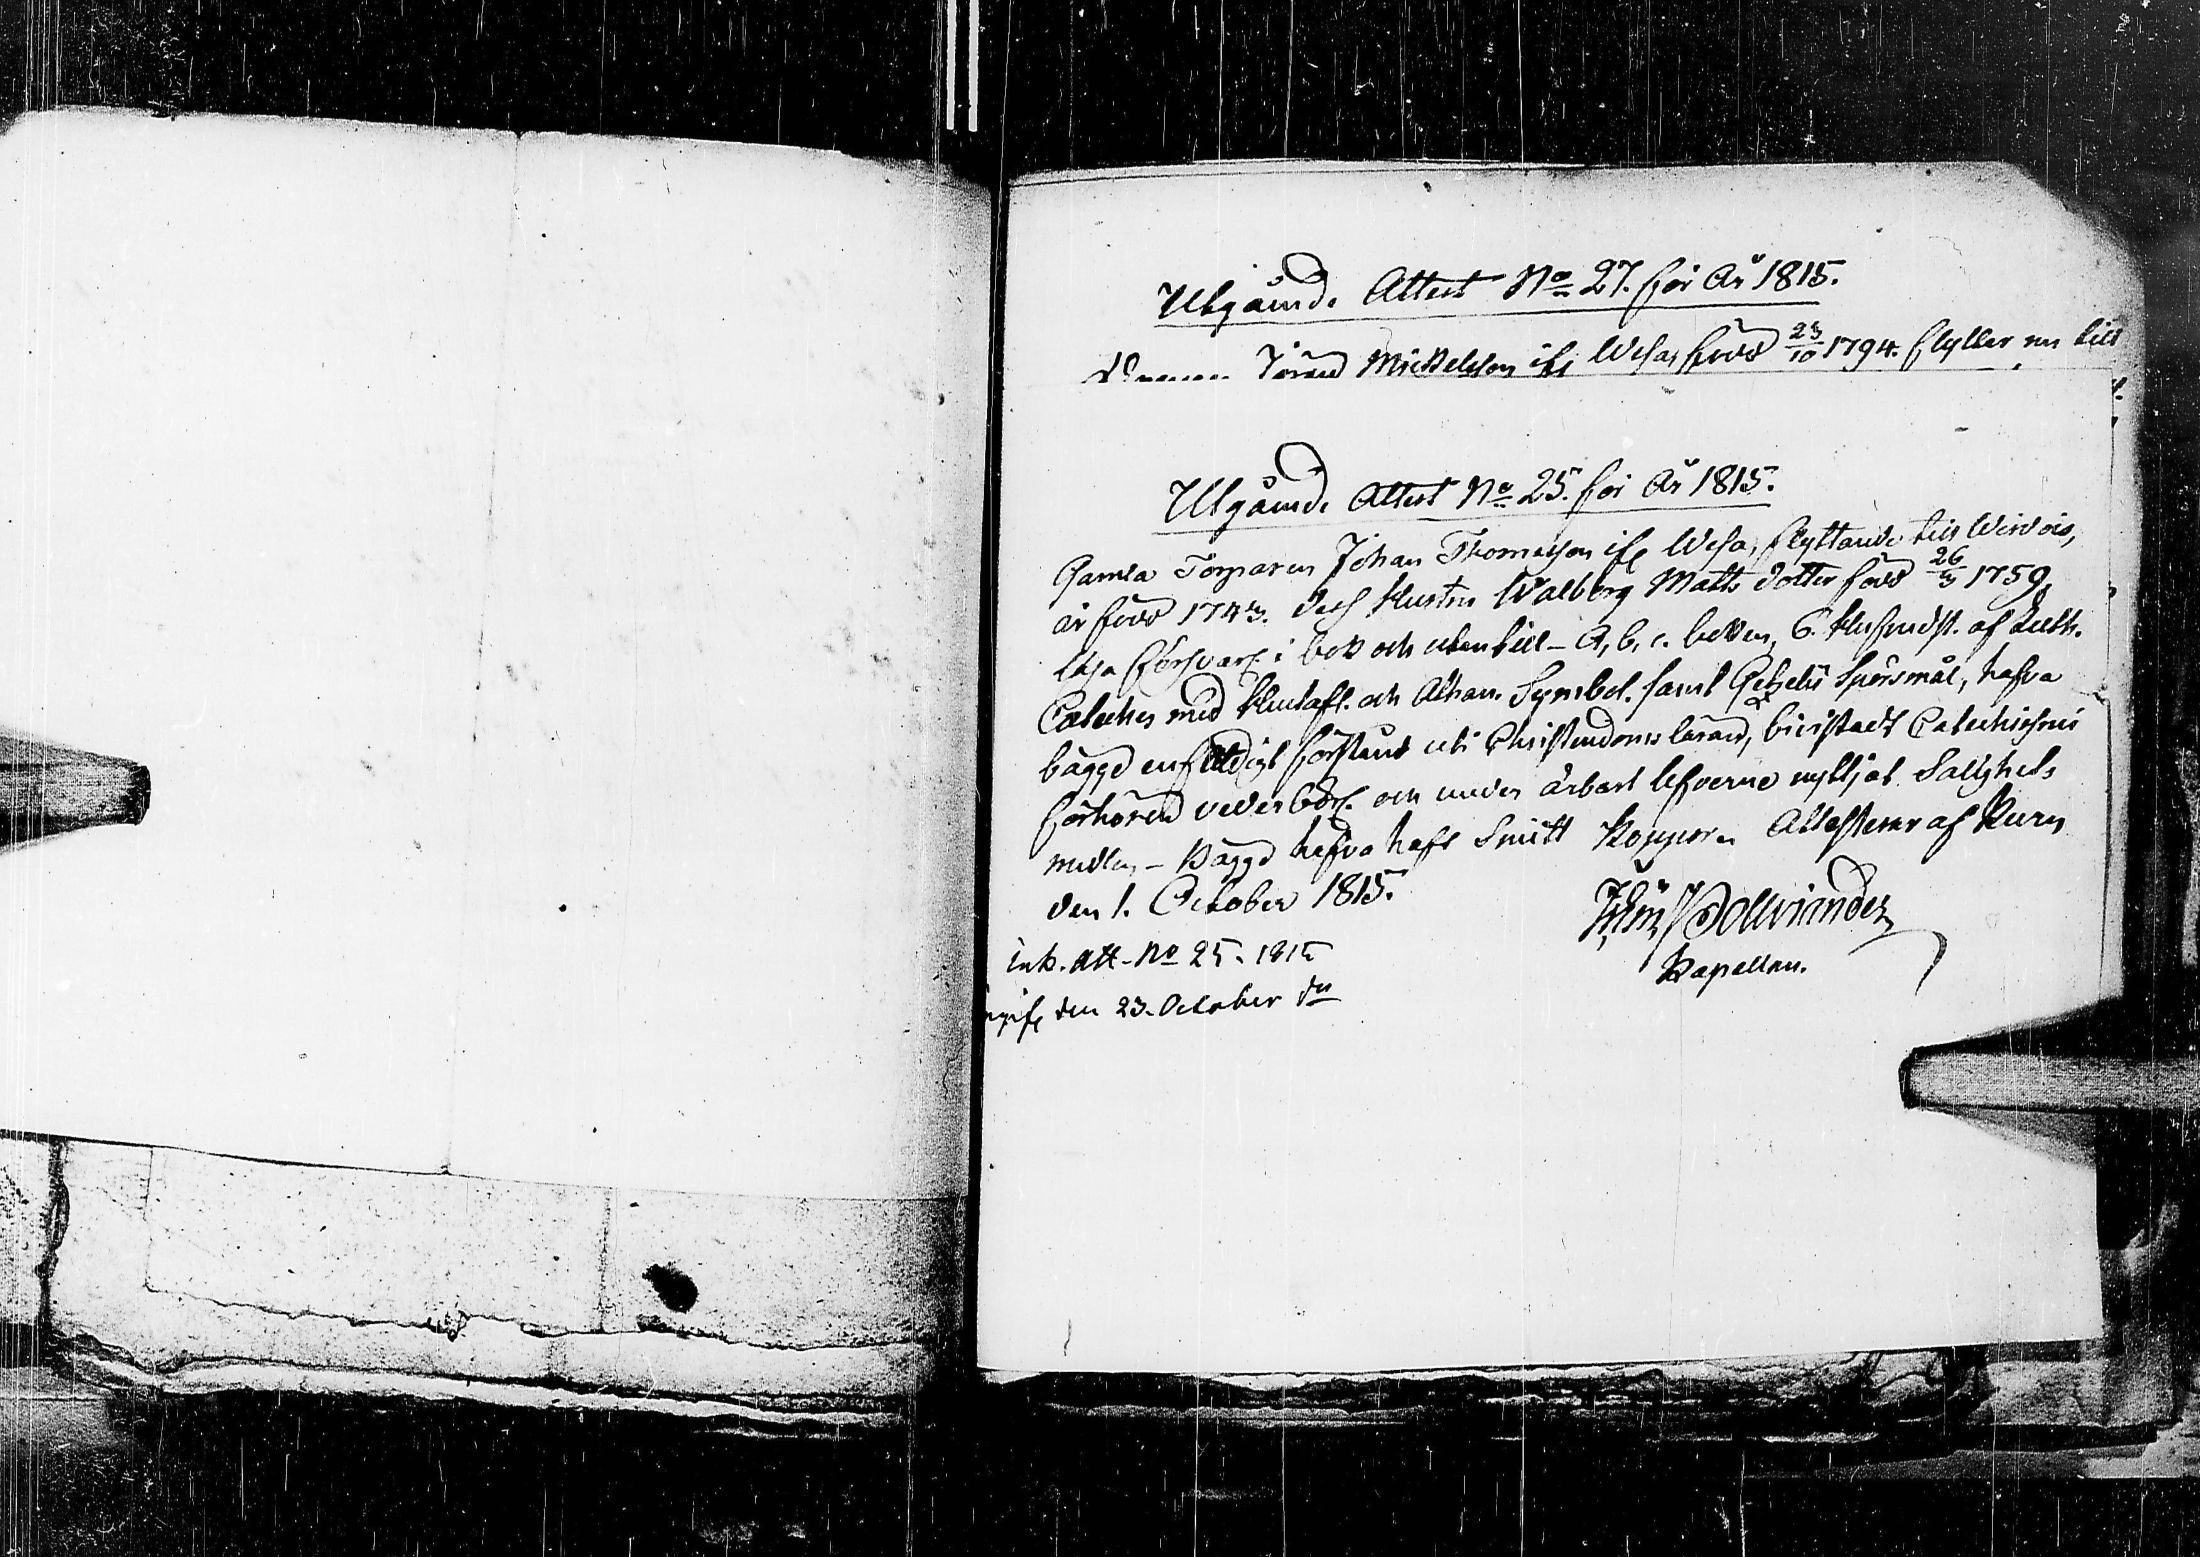 Utgående Attest No 27. för År 1815.
Jöran Mickelsson ifr Wesa, född 23/10 1794. flyttar nu till
Utgående Attest No 25. för År 1815.
Gamla Torparen Johan Thomasson ifr Wesa, flyttande till Wirvois,
är född 1743. dess Hustru Walborg Matts dotter född 26/3 1759,
läsa försvarl. i bok och utantill – A, b, c. boken, 6. Hufvudst. af Luth.
Cateches med Hustafl. och Athan. Symbol. samt Gezelii Spörsmål, hafva
bägge enfaldigt förstånd uti Christendoms läran, bivistadt Catechismi
förhören vederbörl. och under ärbart lefverne nyttjat Salighets
medlen – Bägge hafva haft Smitt Koppor. Attesterar af Kumo
den 1. October 1815.
Kapellan.
Ink. Att. No 25. 1815
den 23. October